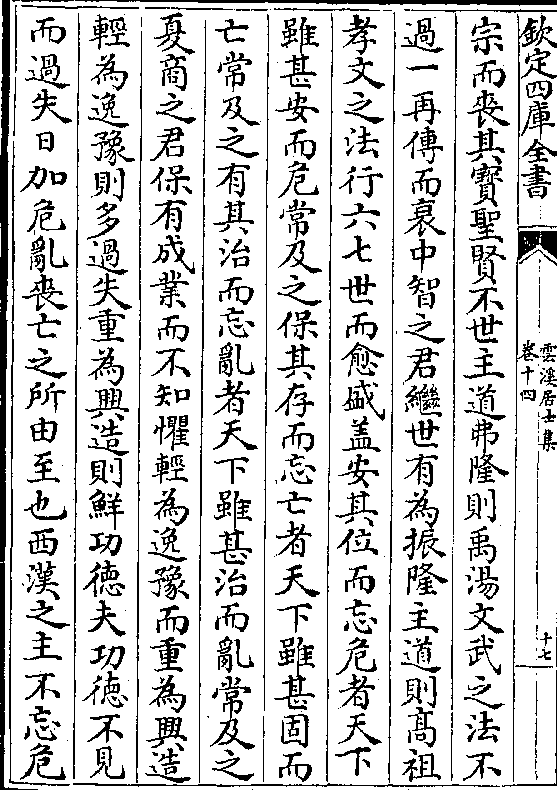 欽定四庫全書
雲溪居士集
卷十四
十七
宗而喪其寳聖賢不世主道弗隆則禹湯文武之法不
過一再傳而衰中智之君繼世有為振隆主道則髙祖
孝文之法行六七世而愈盛盖安其位而忘危者天下
雖甚安而危常及之保其存而忘亡者天下雖甚固而
亡常及之有其治而忘亂者天下雖甚治而亂常及之
夏商之君保有成業而不知懼輕為逸豫而重為興造
輕為逸豫則多過失重為興造則鮮功徳夫功徳不見
而過失日加危亂喪亡之所由至也西漢之主不忘危